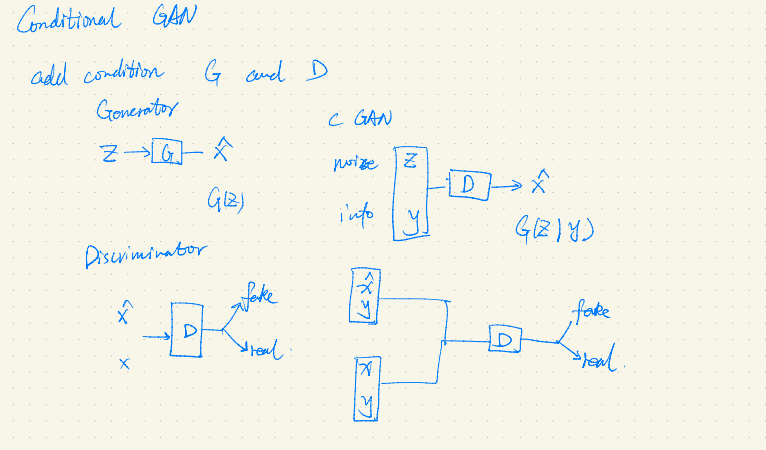 Conditional GAN
add condition G and D
Generator
Z → G – x̂
G(Z)
C GAN
noize Z
info y
D → x̂
G(Z|y)
Discriminator
x̂
x
D
fake
real.
x̂
y
x
y
D
fake
real.